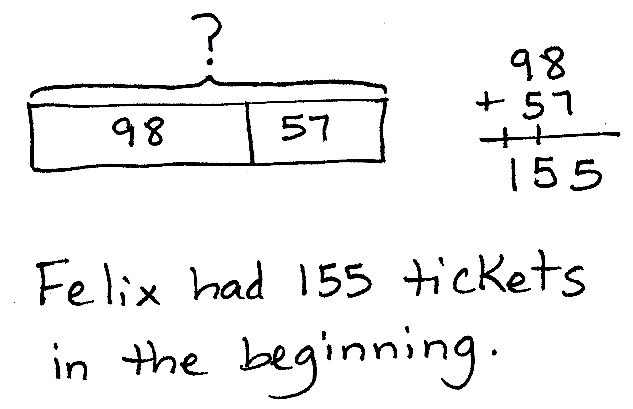 ?
98 57
98
+ 57
155
Felix had 155 tickets
in the beginning.